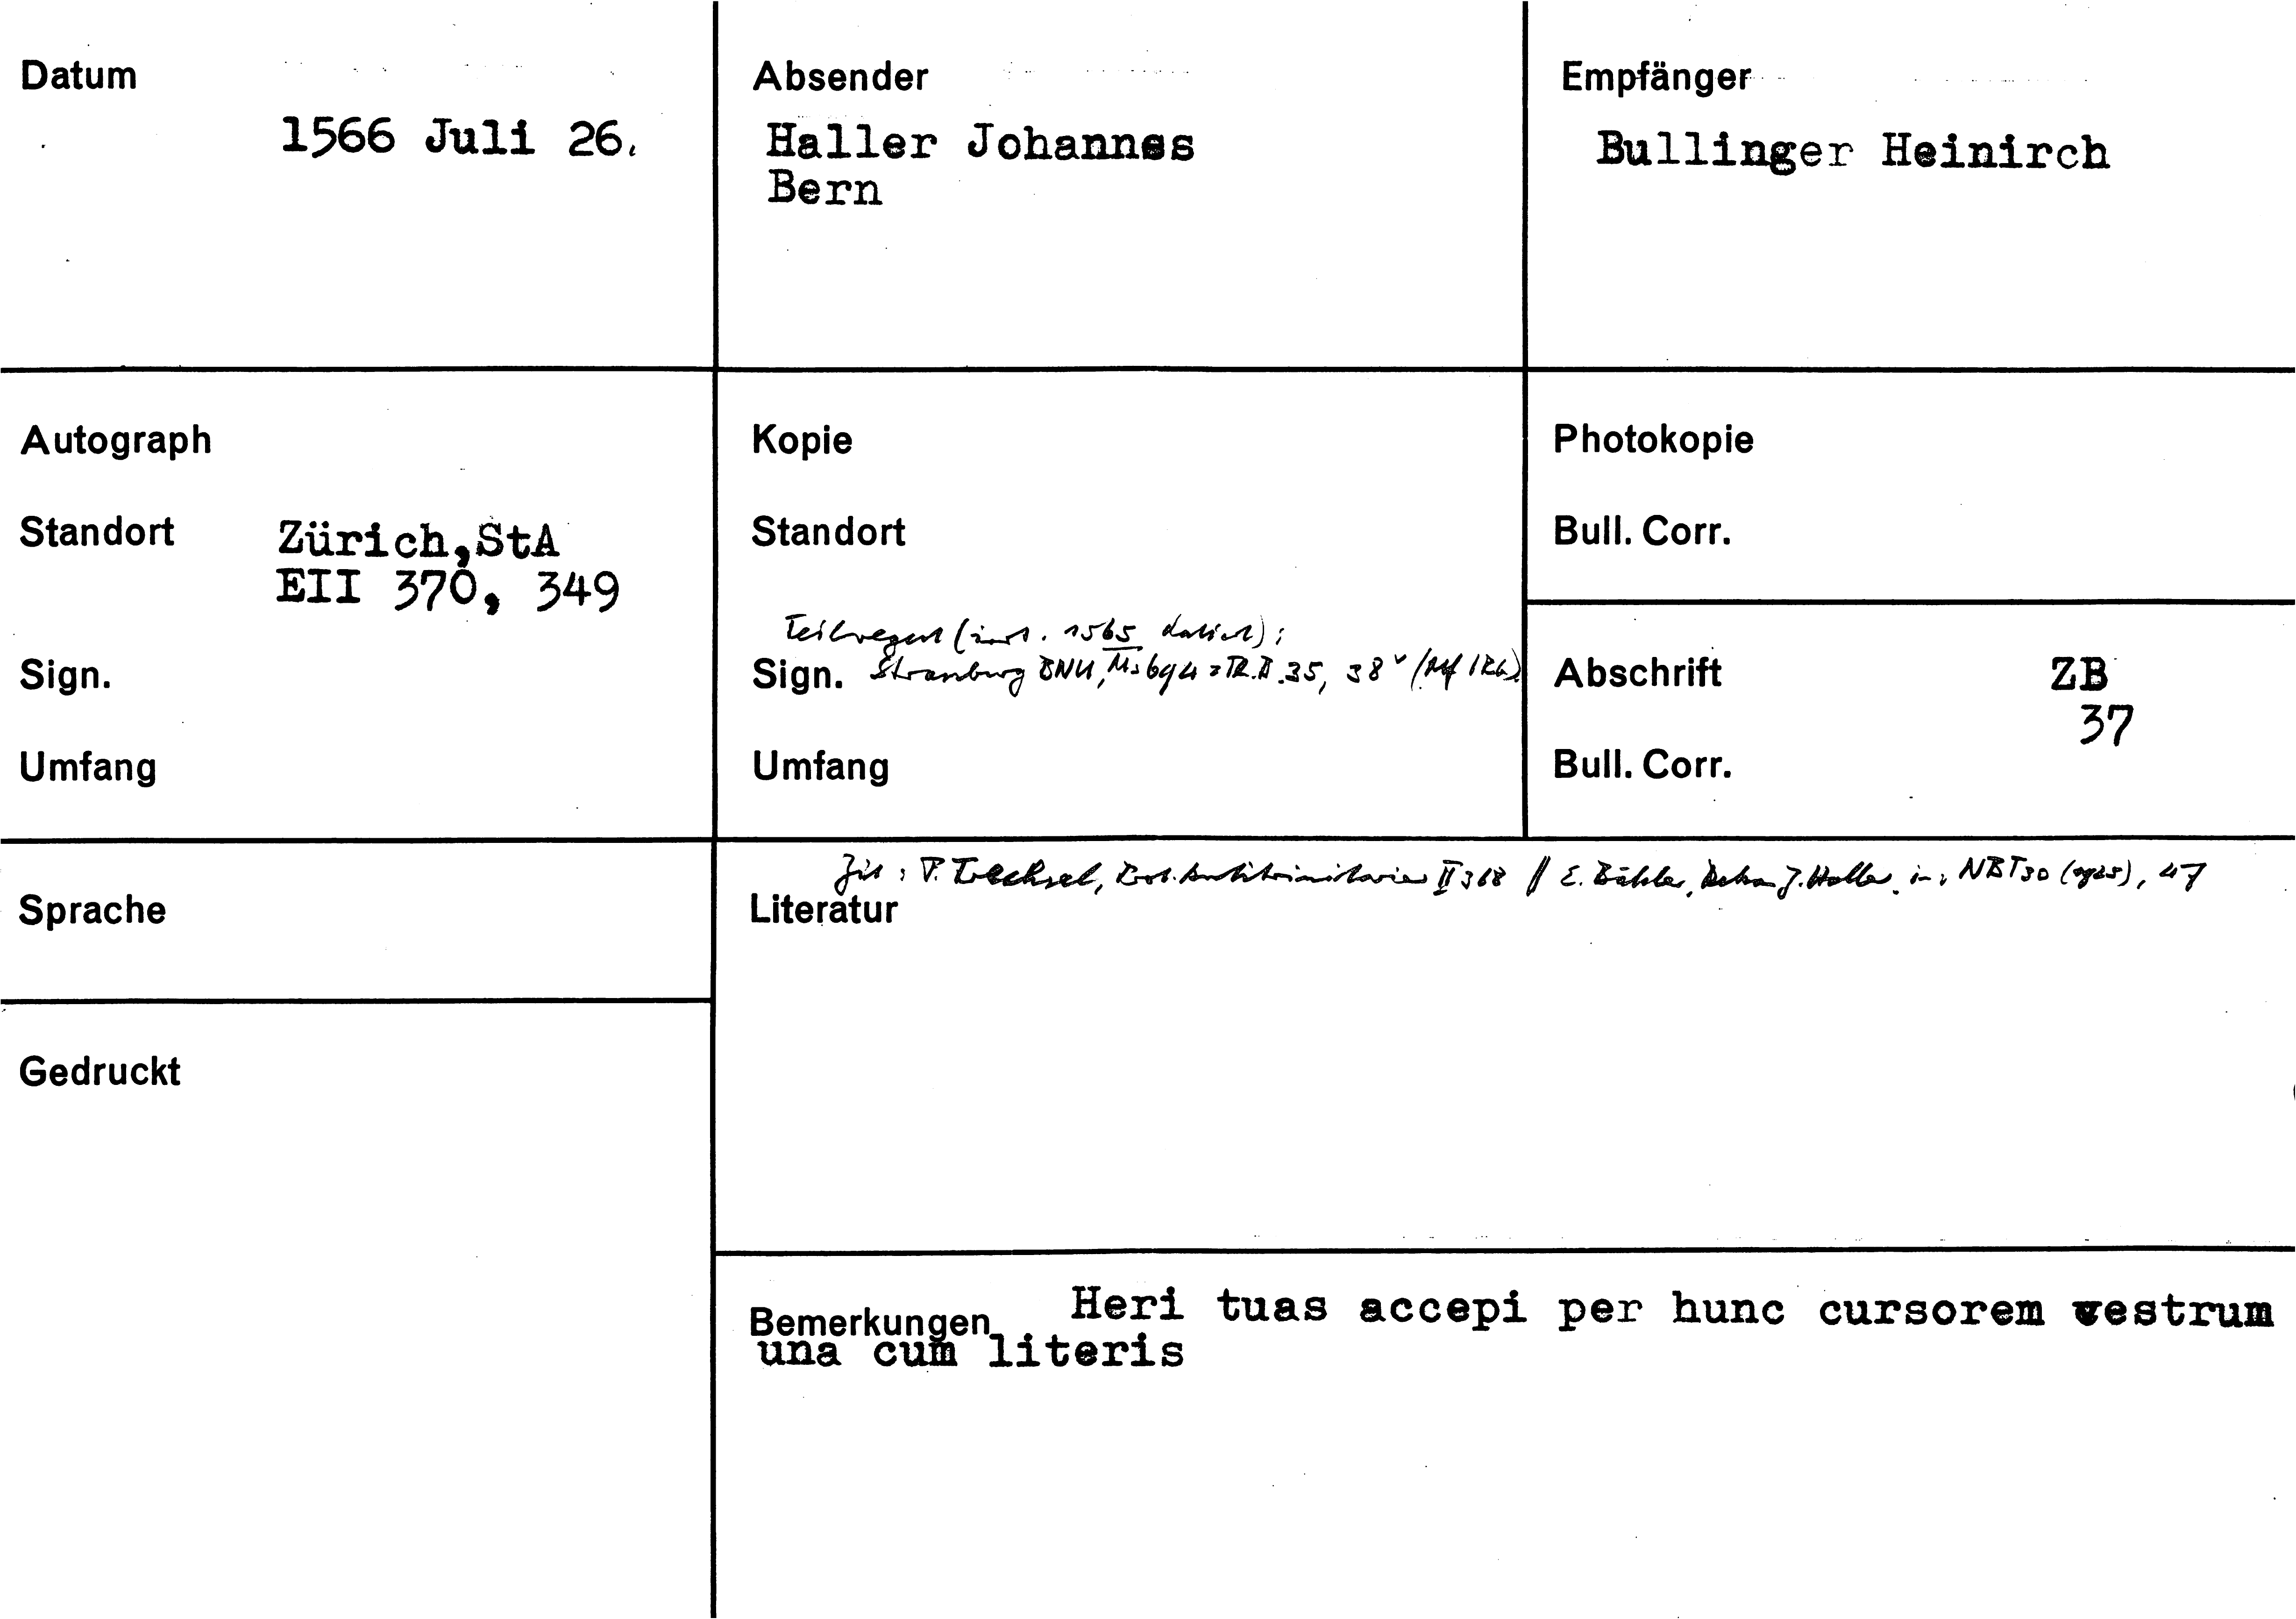 Datum
1566 Juli 26.
Absender
Haller Johannes
Bern
Empfänger
Bullinger Heinirch
Autograph
Standort
Zürich,StA
EII 370, 349
Sign.
Umfang
Kopie
Standort
Teilregest (irrt. 1565 datiert);
Sign. Strassburg BNU, Ms 694 = TR.II.35, 38v
Umfang
Photokopie
Bull. Corr.
Abschrift ZB
37
Bull. Corr.
Sprache
Gedruckt
Zit: F. Trechsel, Prot. Antitrinitarier II 368 // E. Bähler, Dekan J. Haller, in: NBT 30 (1925), 47
Literatur
Bemerkungen Heri tuas accepi per hunc cursorem vestrum
una cum literis